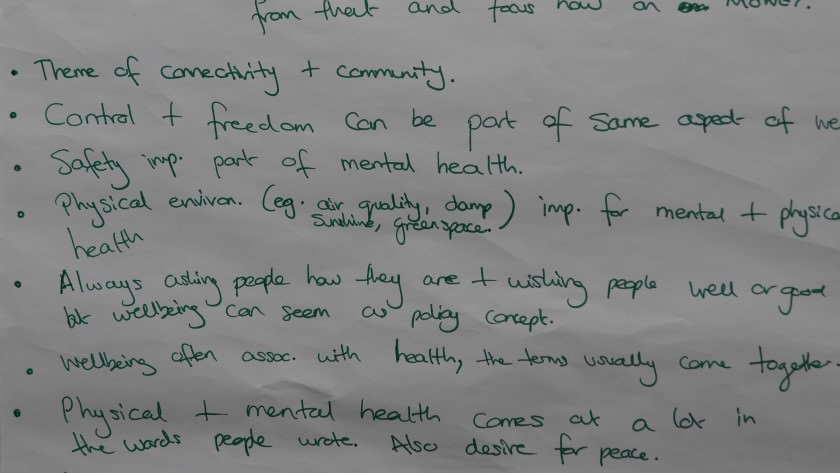 from that and focus now on
• Theme of connectivity + community.
• Control + freedom can be part of same aspect of we
• Safety imp. part of mental health.
• Physical environ. (eg. air quality, damp) imp. for mental + physica
sunshine, greenspace.
health
• Always asking people how they are + wishing people well or good
but wellbeing can seem as policy concept.
• Wellbeing often assoc. with health, the terms usually come together.
• Physical + mental health comes at a lot in
the words people wrote. Also desire for peace.